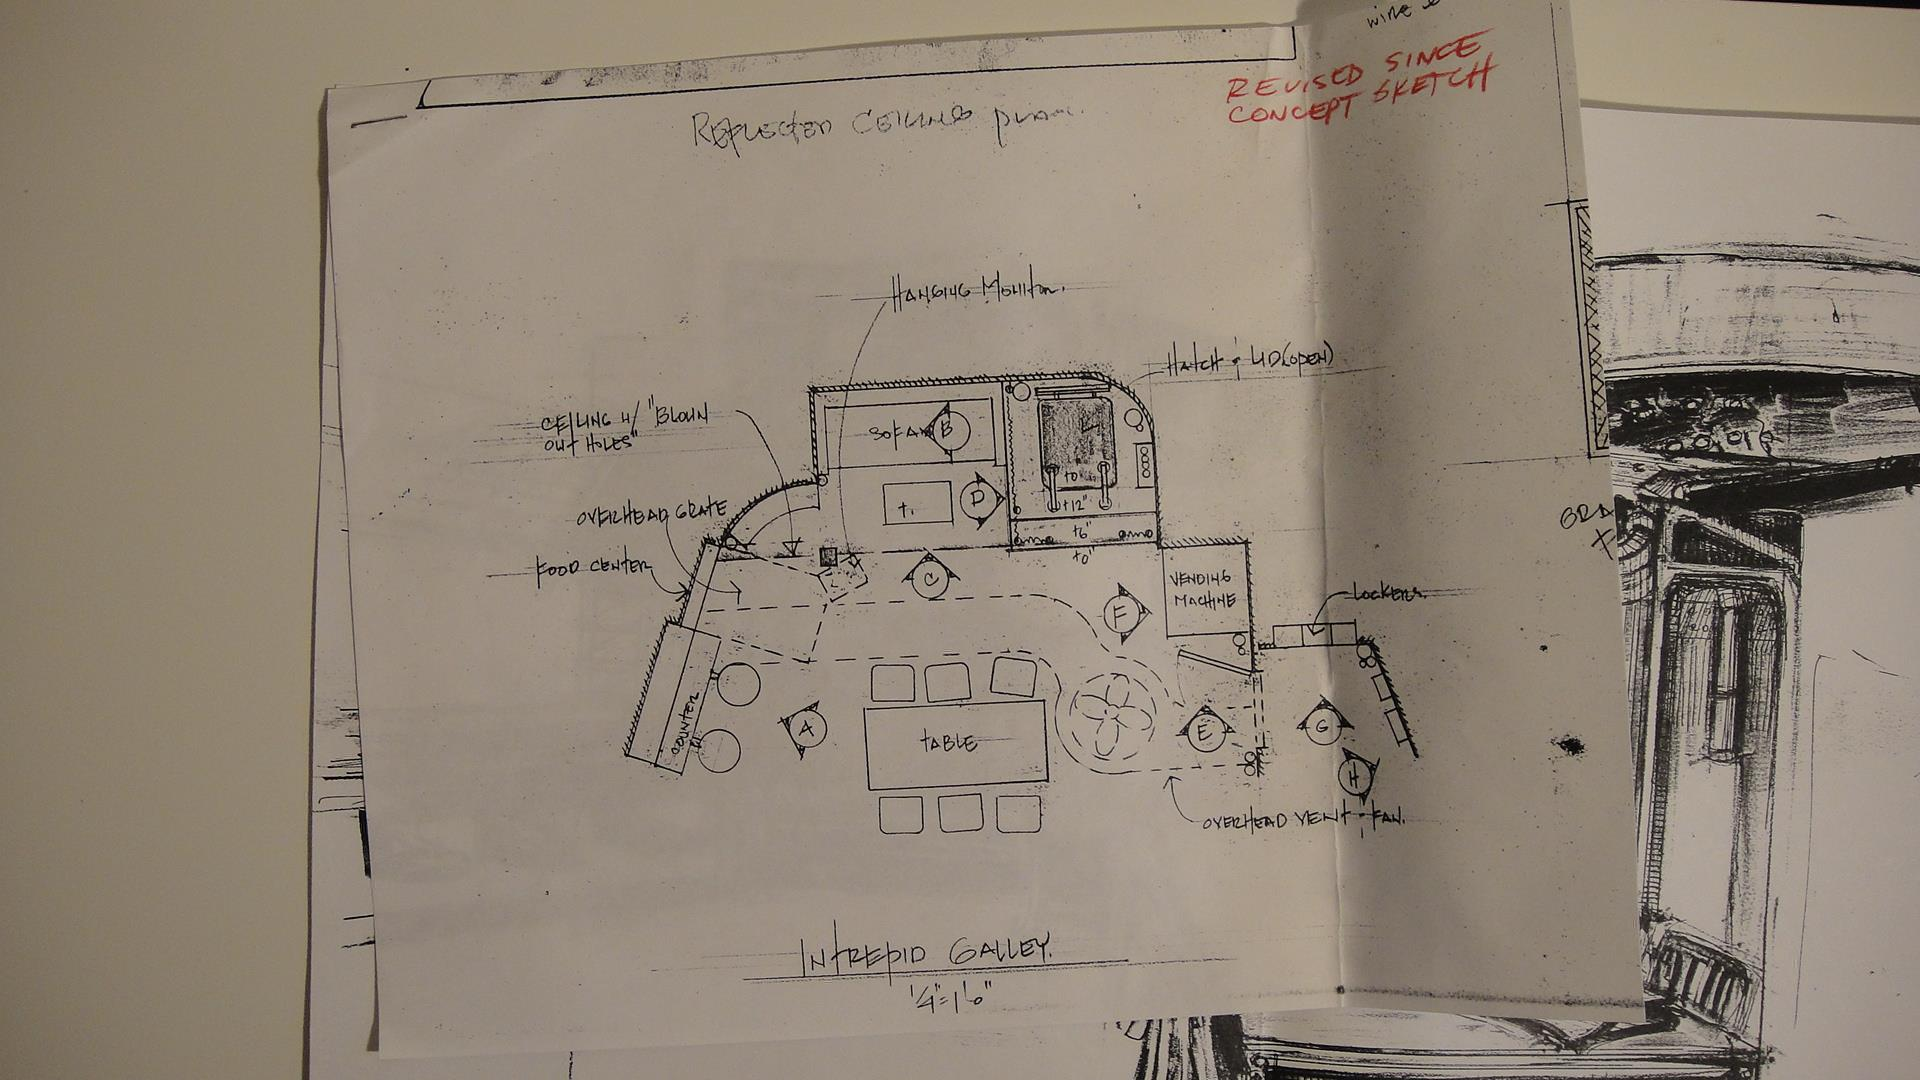 wire
REVISED SINCE
CONCEPT SKETCH
REFLECTED CEILING PLAN.
HANGING MONITOR.
HATCH & LID (OPEN)
CEILING W/ "BLOWN
OUT HOLES"
SOFA
B
OVERHEAD GRATE
t.
D
±0"
+12"
+6"
±0"
FOOD CENTER
C
F
VENDING
MACHINE
LOCKERS.
COUNTER
A
TABLE
E
G
H
OVERHEAD VENT & FAN.
INTREPID GALLEY.
1/4"=1'0"